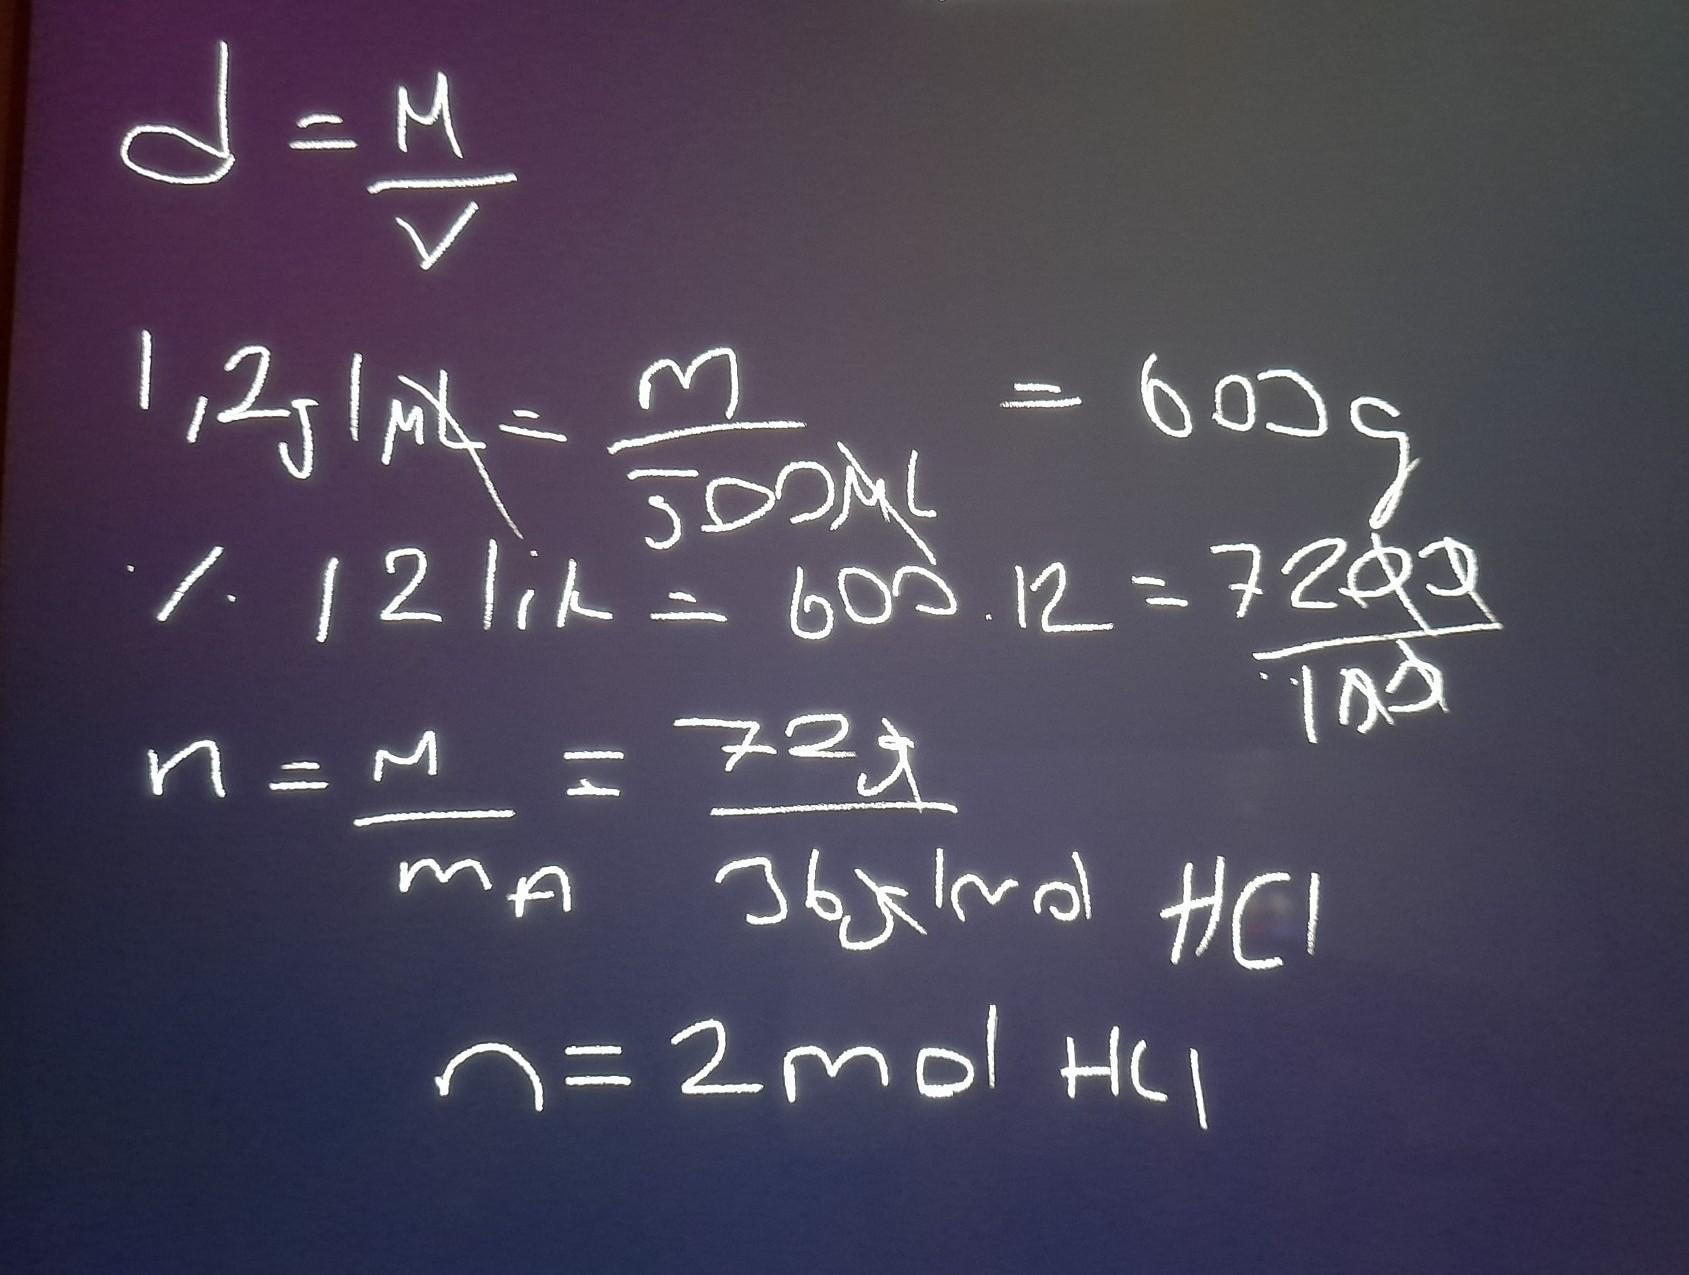 d = M/V
1,2g/ML = m/500ML = 600g
% 12 lik = 600.12 = 7200/100
n = M/mA = 72g/36g/mol HCl
n = 2 mol HCl